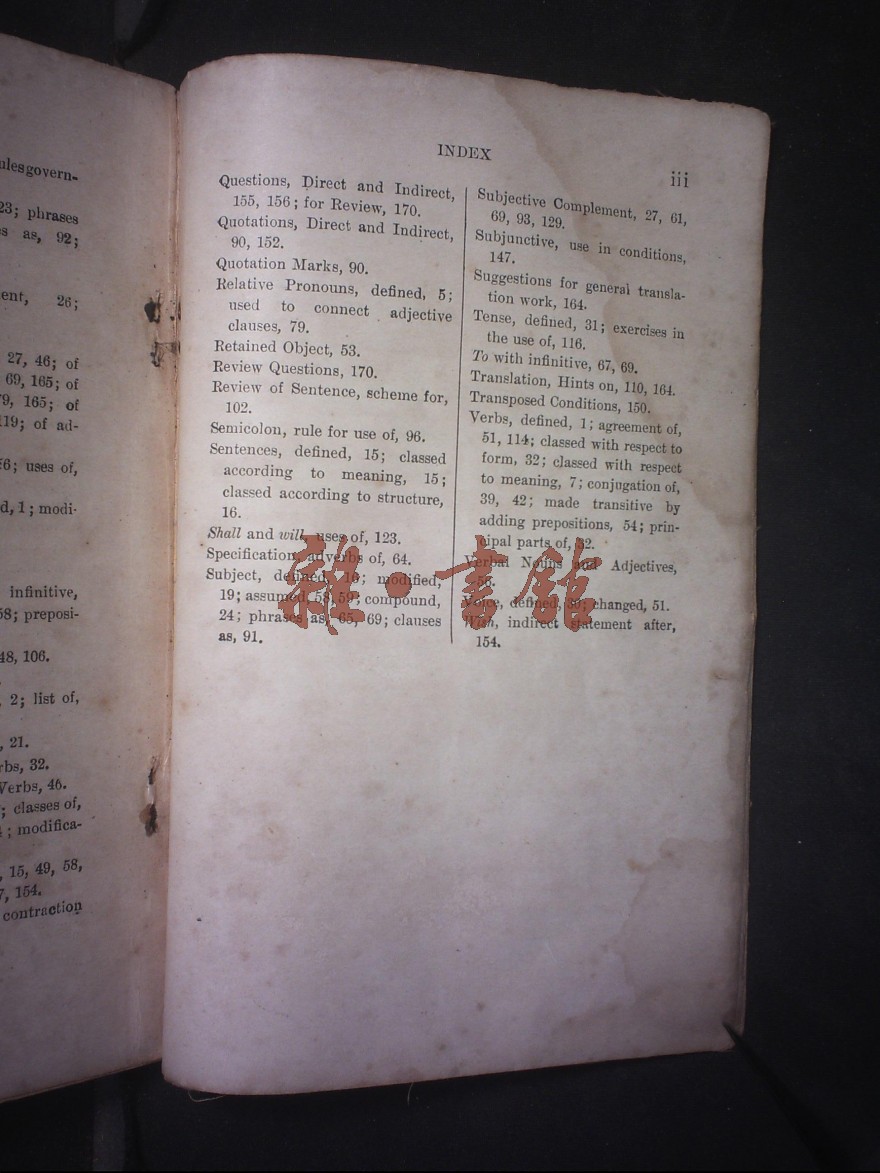 ules govern-
23; phrases
s as, 92;
ent, 26;
27, 46; of
69, 165; of
9, 165; of
119; of ad-
6; uses of,
d, 1; modi-
infinitive,
58; preposi-
48, 106.
, 2; list of,
, 21.
rbs, 32.
Verbs, 46.
; classes of,
; modifica-
, 15, 49, 58,
7, 154.
contraction
INDEX
iii
Questions, Direct and Indirect,
155, 156; for Review, 170.
Quotations, Direct and Indirect,
90, 152.
Quotation Marks, 90.
Relative Pronouns, defined, 5;
used to connect adjective
clauses, 79.
Retained Object, 53.
Review Questions, 170.
Review of Sentence, scheme for,
102.
Semicolon, rule for use of, 96.
Sentences, defined, 15; classed
according to meaning, 15;
classed according to structure,
16.
Shall and will, uses of, 123.
Specification, adverbs of, 64.
Subject, defined, 16; modified,
19; assumed, 58, 59; compound,
24; phrases as, 65, 69; clauses
as, 91.
Subjective Complement, 27, 61,
69, 93, 129.
Subjunctive, use in conditions,
147.
Suggestions for general transla-
tion work, 164.
Tense, defined, 31; exercises in
the use of, 116.
To with infinitive, 67, 69.
Translation, Hints on, 110, 164.
Transposed Conditions, 150.
Verbs, defined, 1; agreement of,
51, 114; classed with respect to
form, 32; classed with respect
to meaning, 7; conjugation of,
39, 42; made transitive by
adding prepositions, 54; prin-
cipal parts of, 32.
Verbal Nouns and Adjectives,
56.
Voice, defined, 30; changed, 51.
Wish, indirect statement after,
154.
雜·書館